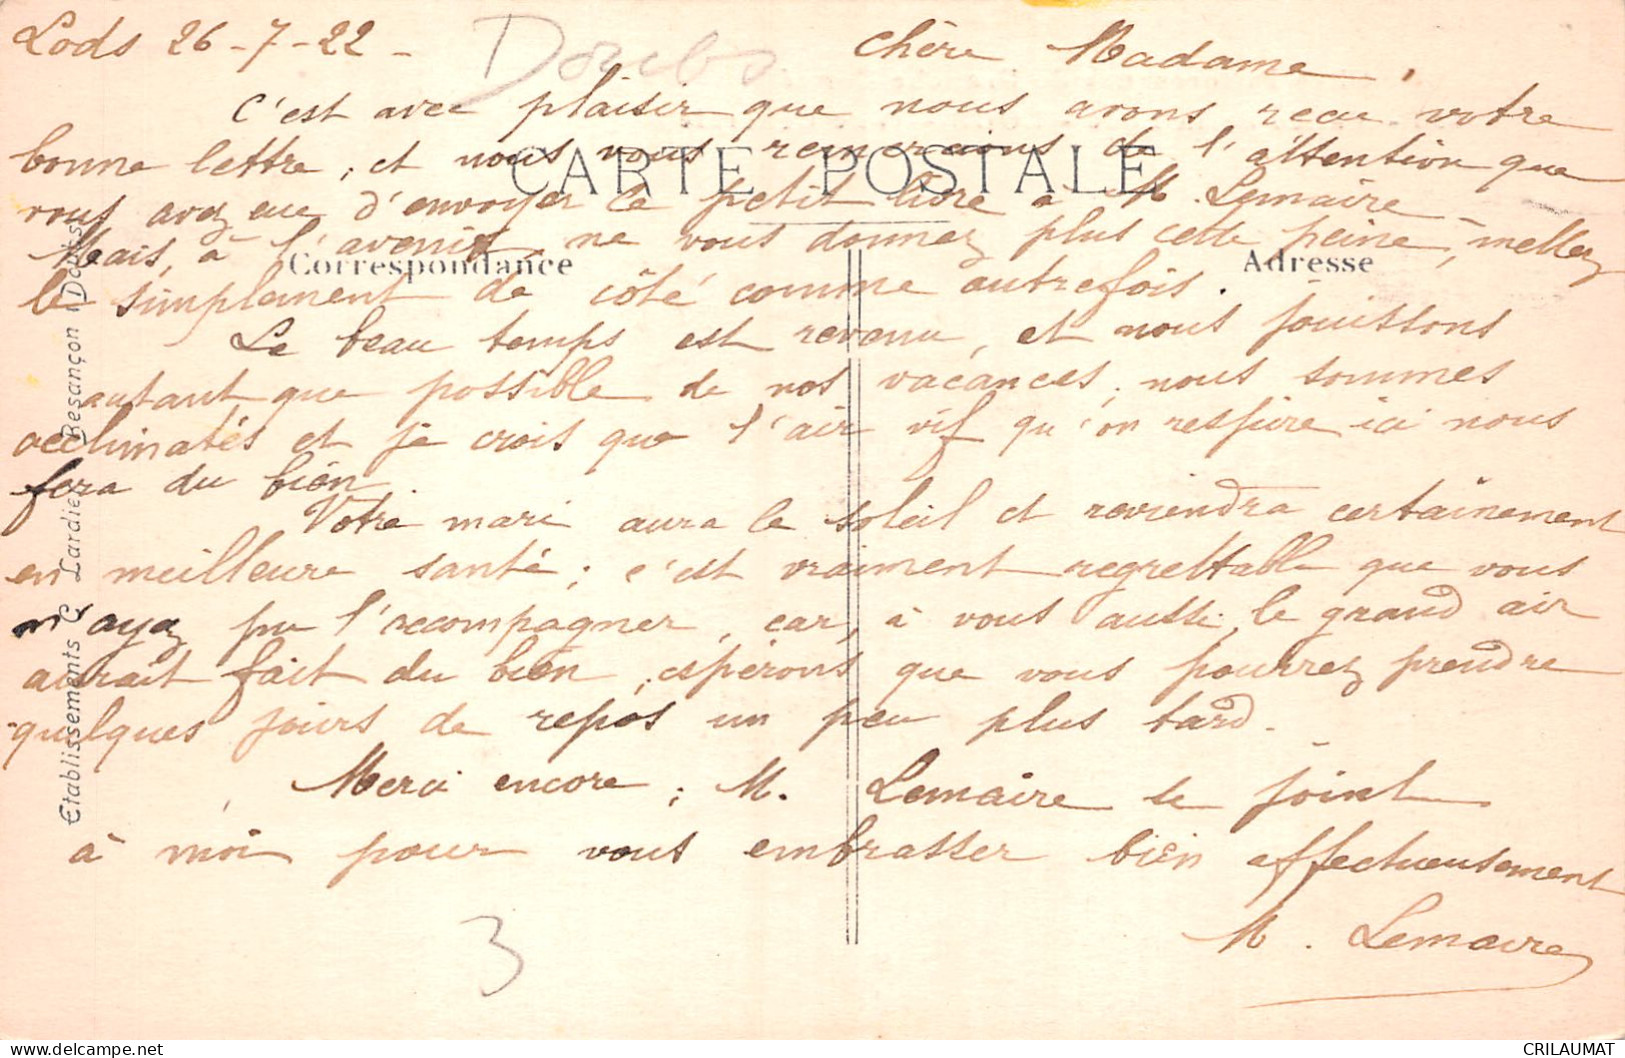 Lods 26-7-22 -
Doubs
Chère Madame,
C'est avec plaisir que nous avons reçu votre
bonne lettre, et nous vous remercions de l'attention que
vous avez eue d'envoyer ce petit livre à M. Lemaire -
Mais, à l'avenir, ne vous donnez plus cette peine, mettez
le simplement de côté comme autrefois.
Le beau temps est revenu, et nous jouissons
autant que possible de nos vacances, nous sommes
acclimatés et je crois que l'air vif qu'on respire ici nous
fera du bien.
Votre mari aura le soleil et reviendra certainement
en meilleure santé; c'est vraiment regrettable que vous
n'ayez pu l'accompagner, car, à vous aussi, le grand air
aurait fait du bien, espérons que vous pourrez prendre
quelques jours de repos un peu plus tard.
Merci encore; M. Lemaire se joint
à moi pour vous embrasser bien affectueusement
M. Lemaire
3
CARTE POSTALE
Correspondance
Adresse
Etablissements C. Lardier, Besançon (Doubs)
CRILAUMAT